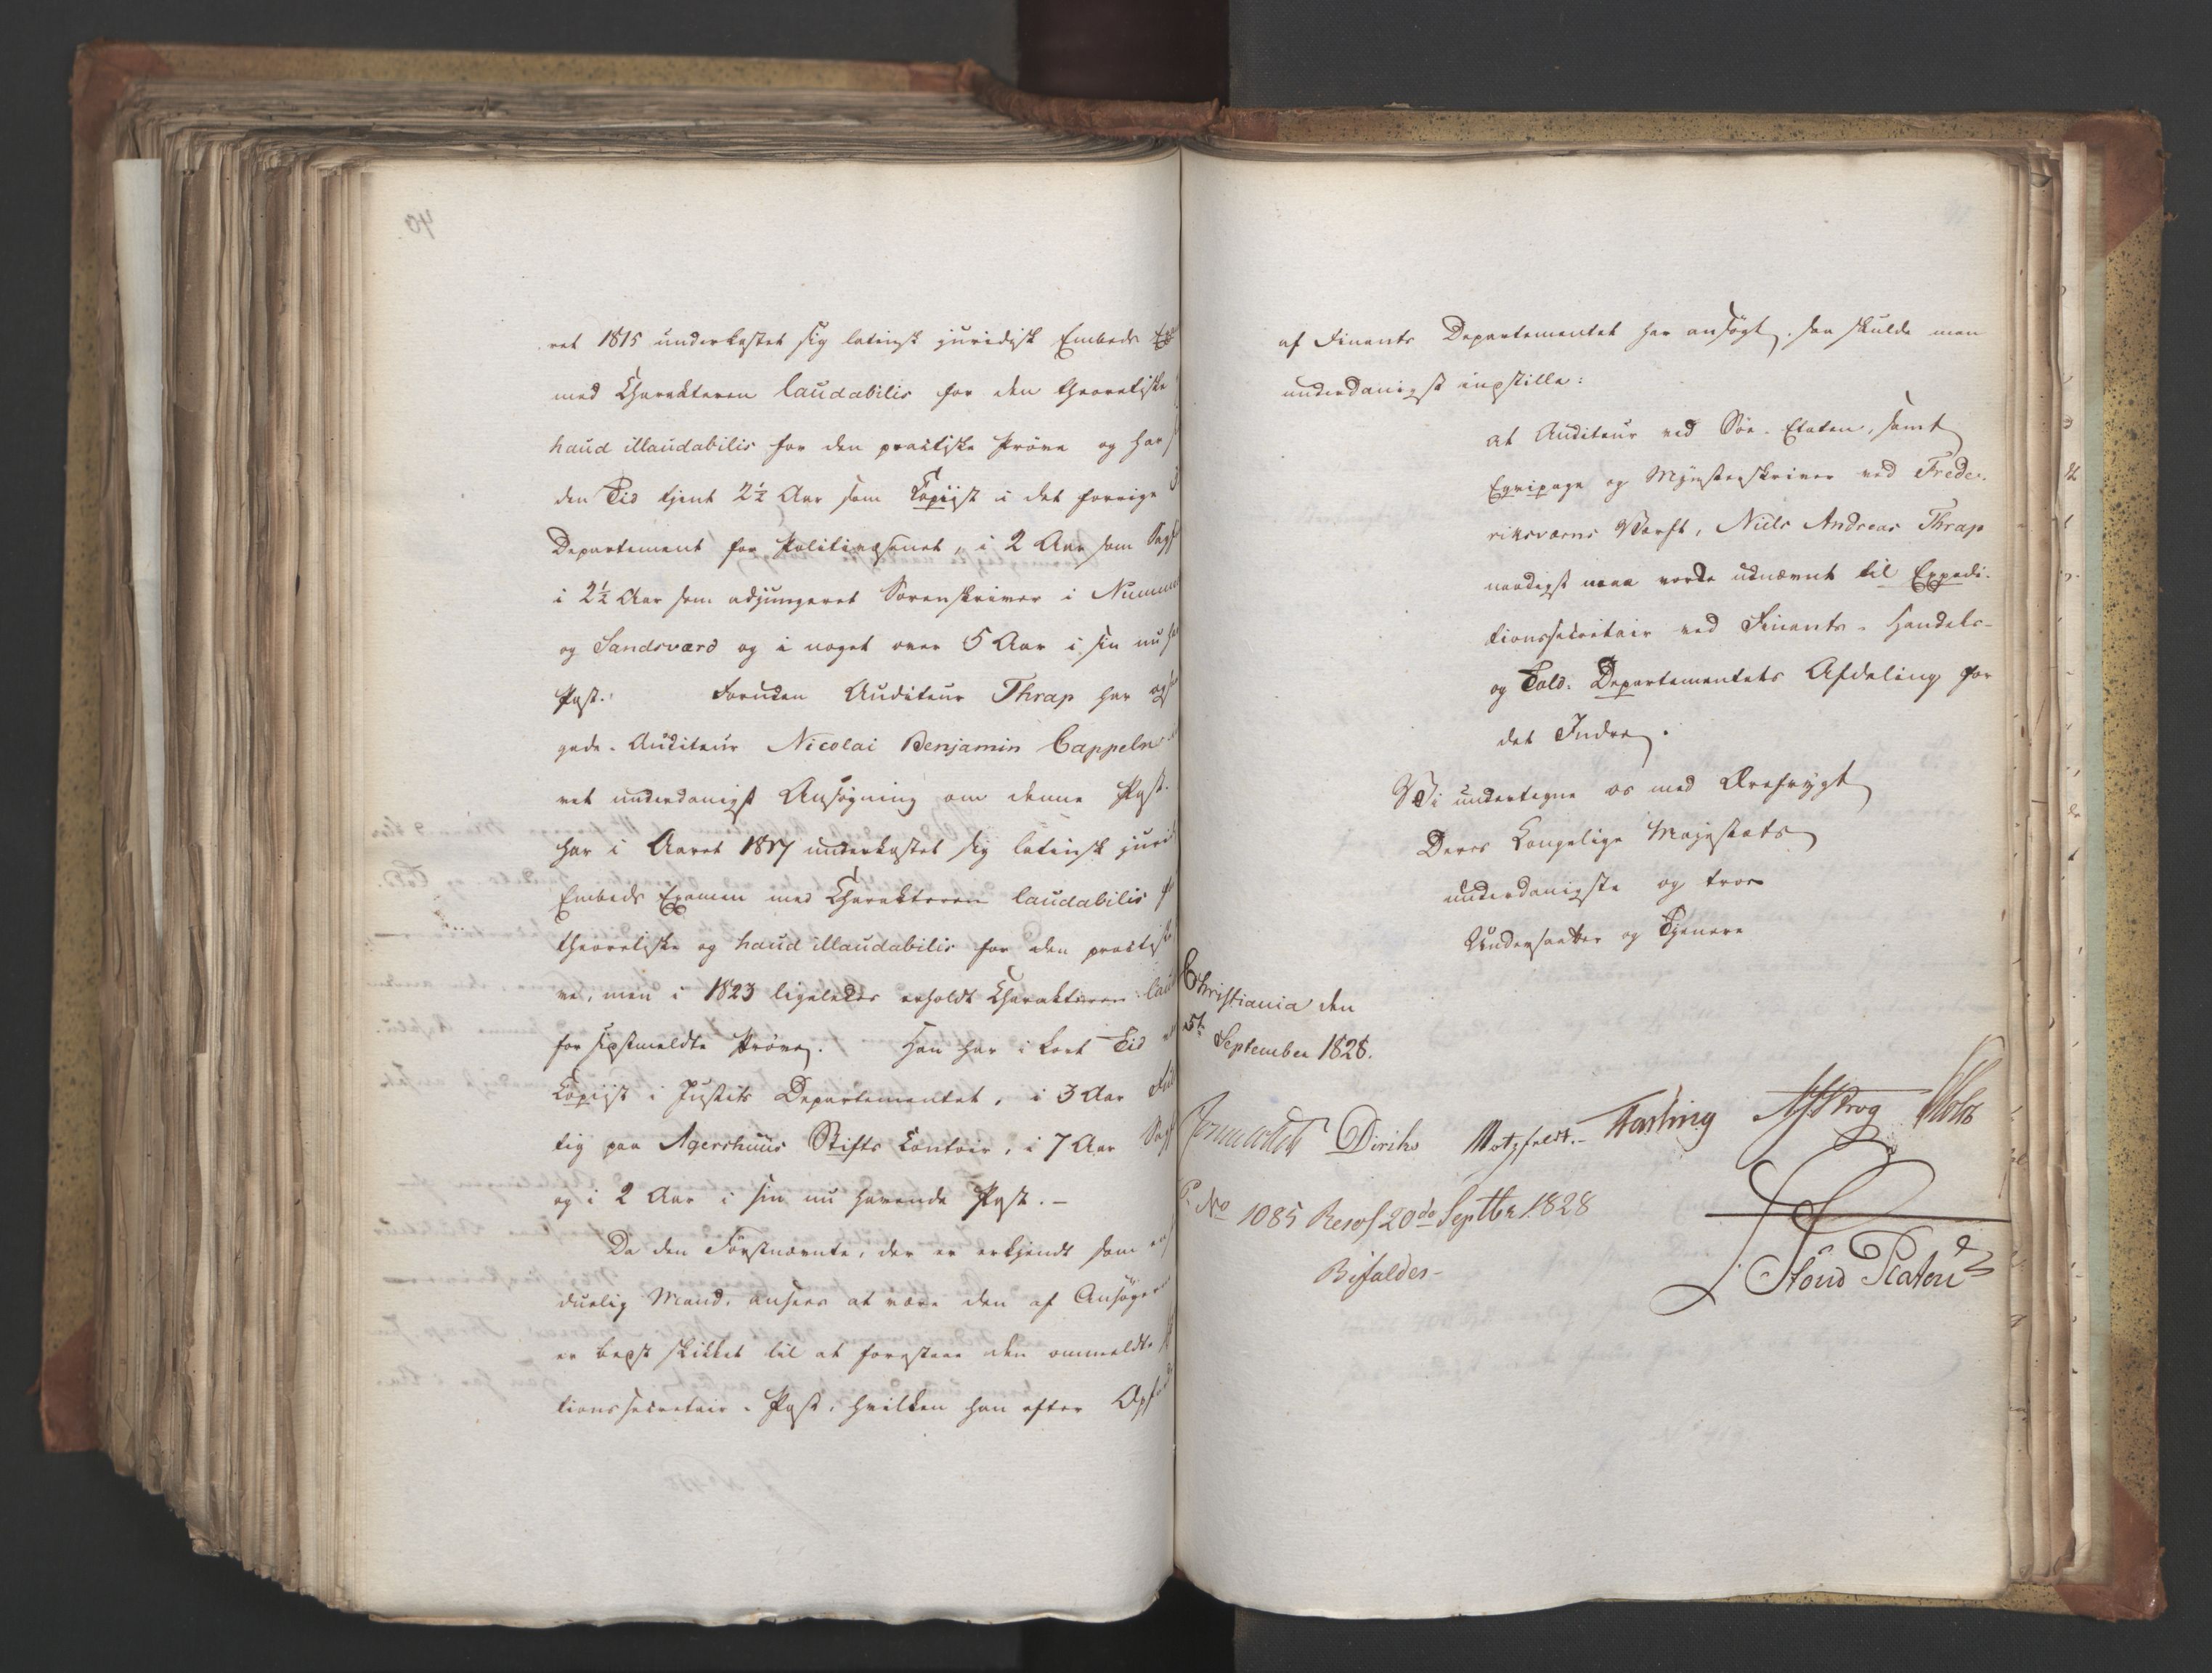 ret 1815 underkastet sig latinsk juridisk Embeds Ex
med Charakteren laudabilis for den theoretiske
haud illaudabilis for den practiske Prøve og har
den Tid tjent 2½ Aar som Copiist i det forrige
Departement for Politievæsenet, i 2 Aar som Sagf
i 2½ Aar som adjungeret Sorenskriver i Numme
og Sandsværd og i noget over 5 Aar i sin nu ha
Post. Foruden Auditeur Thrap har og
gade-Auditeur Nicolai Benjamin Cappeln
ret underdanigst Ansøgning om denne Post.
har i Aaret 1817 underkastet sig latinsk juri
Embeds Examen med Charakteren laudabilis f
theoretiske og haud illaudabilis for den practisk
ve, men i 1823 ligeledes erholdt Charakteren laud
for sidstmeldte Prøve. Han har i kort Tid
Copiist i Justits Departementet, i 3 Aar Ful
tig paa Agershuus Stifts Contoir, i 7 Aar Sagf
og i 2 Aar i sin nu havende Post. –
Da den Førstnævnte, der er erkjendt som
duelig Mand, ansees at være den af Ansøger
er bedst skikket til at forestaae den ommeldte
tionssecretair-Post, hvilken han efter Opf
af Finants Departementet har ansøgt, saa skulde man
underdanigst indstille:
at Auditeur ved Søe-Etaten, samt
Eqvipage og Mynsterskriver ved Frede-
riksværns Værft, Niels Andreas Thrap
naadigst maa vorde udnævnt til Expedi-
tionssecretair ved Finants- Handels-
og Told-Departementets Afdeling for
det Indre.
Vi undertegne os med Ærefrygt
Deres Kongelige Majestæts
underdanigste og troe
Undersaatter og Tjenere
Christiania den
5te September 1828.
Diriks Motzfeldt. Fasting Krog Holst
P. No 1085 Resol 20de Septbr 1828
Bifaldes –
Platen